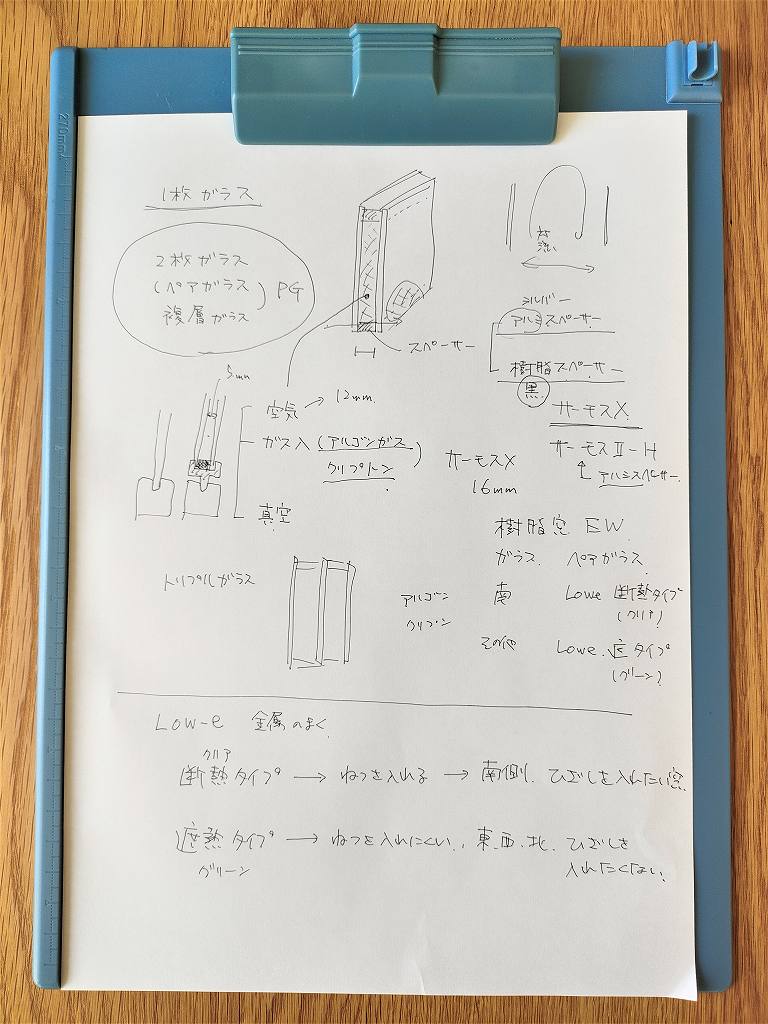 270mm
1枚ガラス
2枚ガラス
(ペアガラス) PG
複層ガラス
対流
スペーサー
シルバー
アルミスペーサー
樹脂スペーサー
黒
5mm
空気 → 12mm
ガス入 (アルゴンガス
クリプトン)
真空
サーモスX
16mm
サーモスX
サーモスⅡ-H
アルミスペーサー
樹脂窓 EW
ガラス ペアガラス
南 Lowe 断熱タイプ
(クリア)
その他 Lowe 遮タイプ
(グリーン)
トリプルガラス
アルゴン
クリプトン
Low-e 金属のまく
クリア
断熱タイプ → ねつを入れる → 南側、ひざしを入れたい窓
遮熱タイプ → ねつを入れにくい、東、西、北、ひざしを
グリーン
入れたくない。